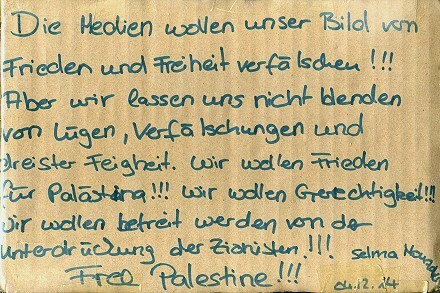 Die Medien wollen unser Bild von
Frieden und Freiheit verfälschen!!!
Aber wir lassen uns nicht blenden
von Lügen, Verfälschungen und
dreister Feigheit. Wir wollen Frieden
für Palästina!!! Wir wollen Gerechtigkeit!!!
Wir wollen befreit werden von der
Unterdrückung der Zionisten!!!
Selma
Free Palestine!!!
04.12.14